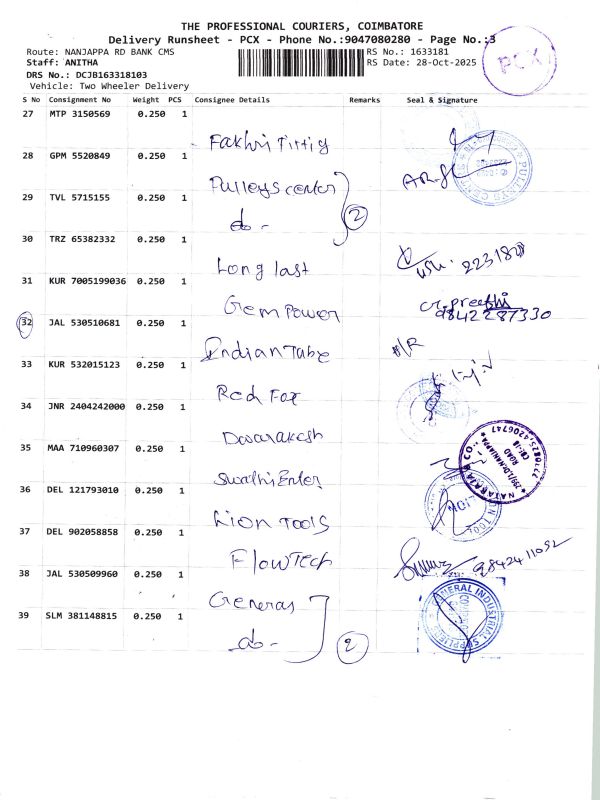 THE PROFESSIONAL COURIERS, COIMBATORE
Delivery Runsheet - PCX - Phone No.:9047080280 - Page No.:3
Route: NANJAPPA RD BANK CMS RS No.: 1633181
Staff: ANITHA RS Date: 28-Oct-2025
DRS No.: DCJB163318103
Vehicle: Two Wheeler Delivery
PCX
S No Consignment No Weight PCS Consignee Details Remarks Seal & Signature
27 MTP 3150569 0.250 1
Fakhri
28 GPM 5520849 0.250 1
Pulleys center
29 TVL 5715155 0.250 1
do - 2
30 TRZ 65382332 0.250 1
Long last
31 KUR 7005199036 0.250 1
Gem Power 9842287330
32 JAL 530510681 0.250 1
Indian Tube
33 KUR 532015123 0.250 1
Red Fox
34 JNR 2404242000 0.250 1
Dwarakesh
35 MAA 710960307 0.250 1
Swathi Enter
36 DEL 121793010 0.250 1
Lion Tools
37 DEL 902058858 0.250 1
FlowTech
38 JAL 530509960 0.250 1
General
39 SLM 381148815 0.250 1
do - 2